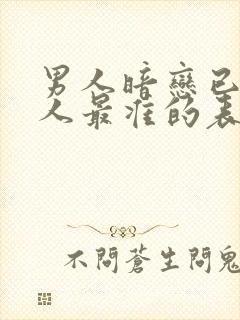 男人暗戀已
人最准的表
不問蒼生問鬼